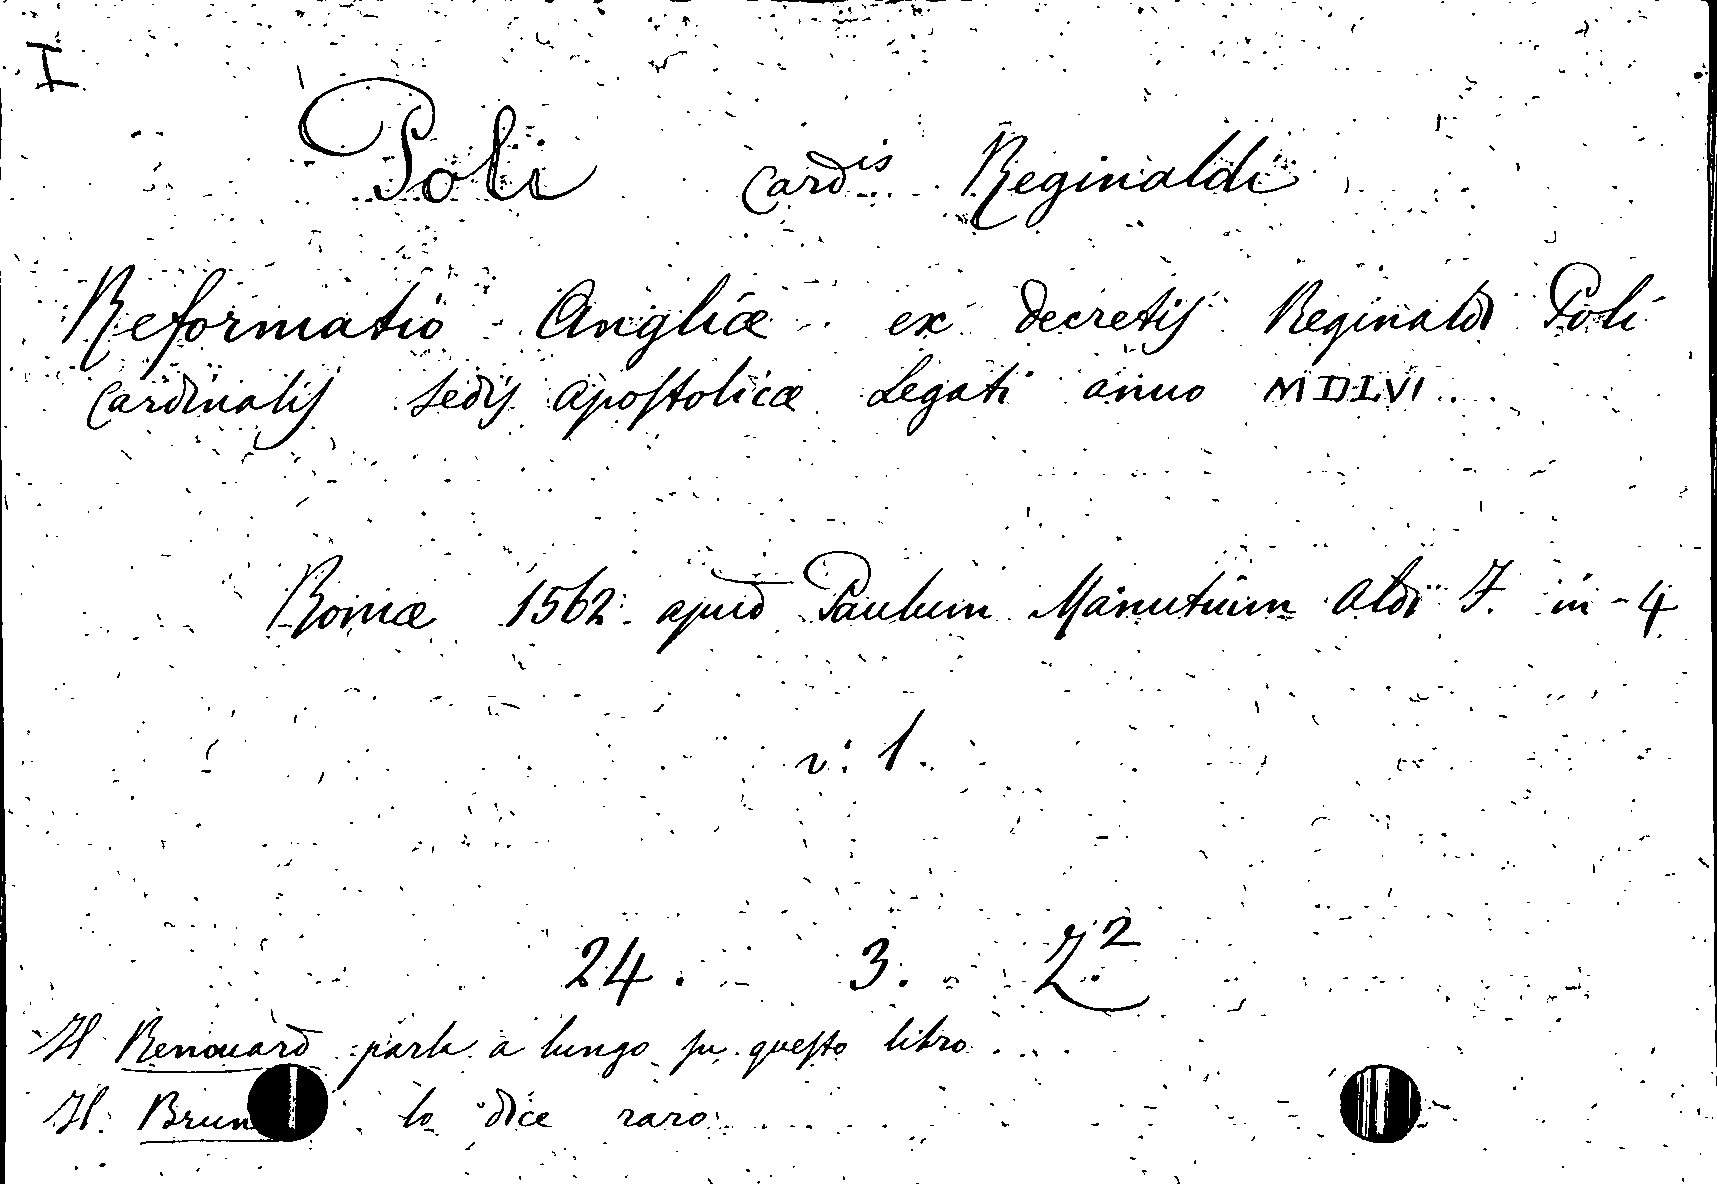 I
Poli Card.is Reginaldi
Reformatio Angliæ ex decretis Reginaldi Poli
Cardinalis Sedis Apostolicæ Legati anno MDLVI..
Romæ 1562 apud Paulum Manutium Aldi F. in-4
v: 1.
24. 3. Z.2
Il Renouard parla a lungo su questo libro...
Il Brun lo dice raro